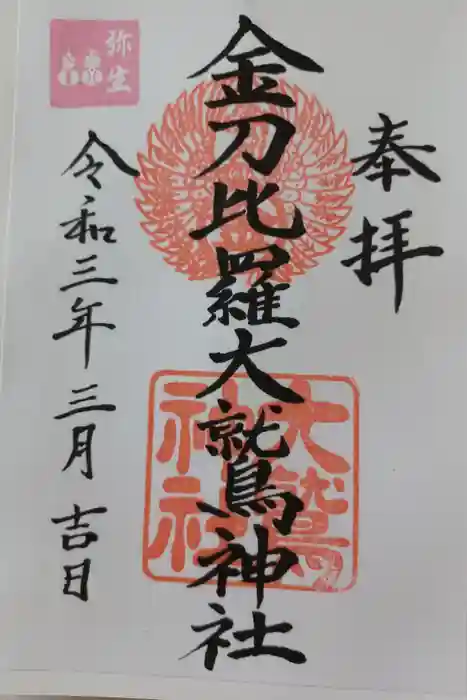 奉拝
金刀比羅大鷲神社
令和三年三月吉日
弥生
大鷲
神社